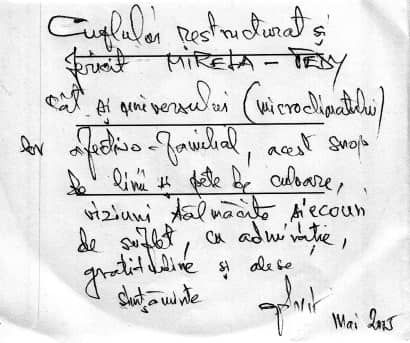 Cuplului restructurat și
fericit MIRELA – TEDY
cât și universului (microclimatului)
lor afectiv-familial, acest snop
de linii și pete de culoare,
viziuni tălmăcite și ecouri
de suflet, cu admirație,
gratitudine și alese
simțăminte
Mai 2005